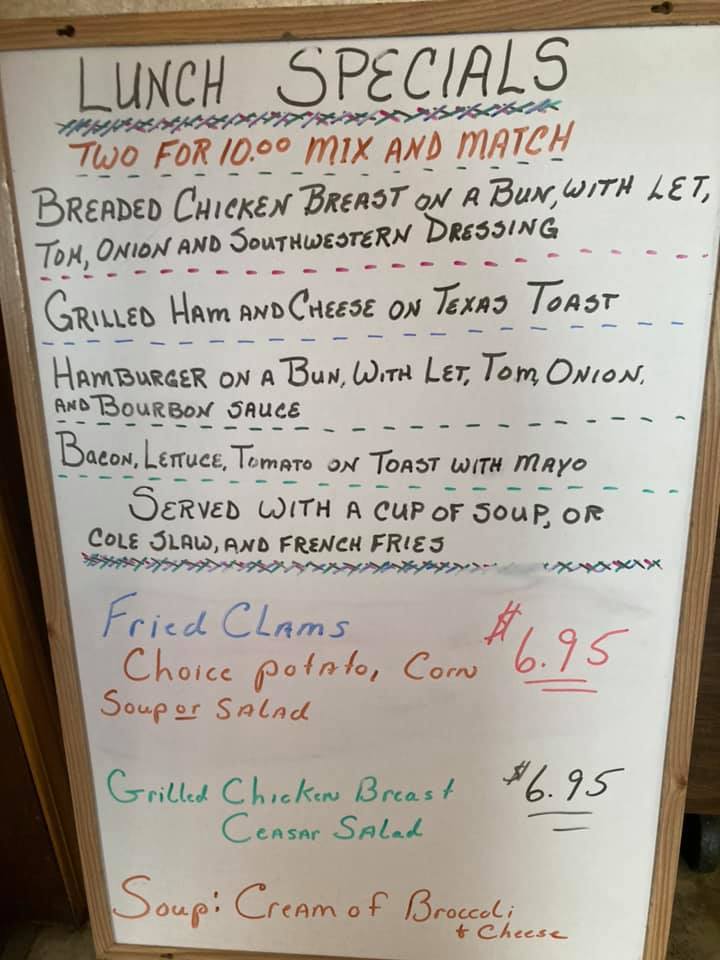 LUNCH SPECIALS
TWO FOR 10.00 MIX AND MATCH
BREADED CHICKEN BREAST ON A BUN, WITH LET,
TOM, ONION AND SOUTHWESTERN DRESSING
GRILLED HAM AND CHEESE ON TEXAS TOAST
HAMBURGER ON A BUN, WITH LET, TOM, ONION,
AND BOURBON SAUCE
BACON, LETTUCE, TOMATO ON TOAST WITH MAYO
SERVED WITH A CUP OF SOUP, OR
COLE SLAW, AND FRENCH FRIES
Fried CLAMS
$6.95
Choice potato, Corn
Soup or SALAD
Grilled Chicken Breast
$6.95
CEASAR SALad
Soup: Cream of Broccoli
+ Cheese